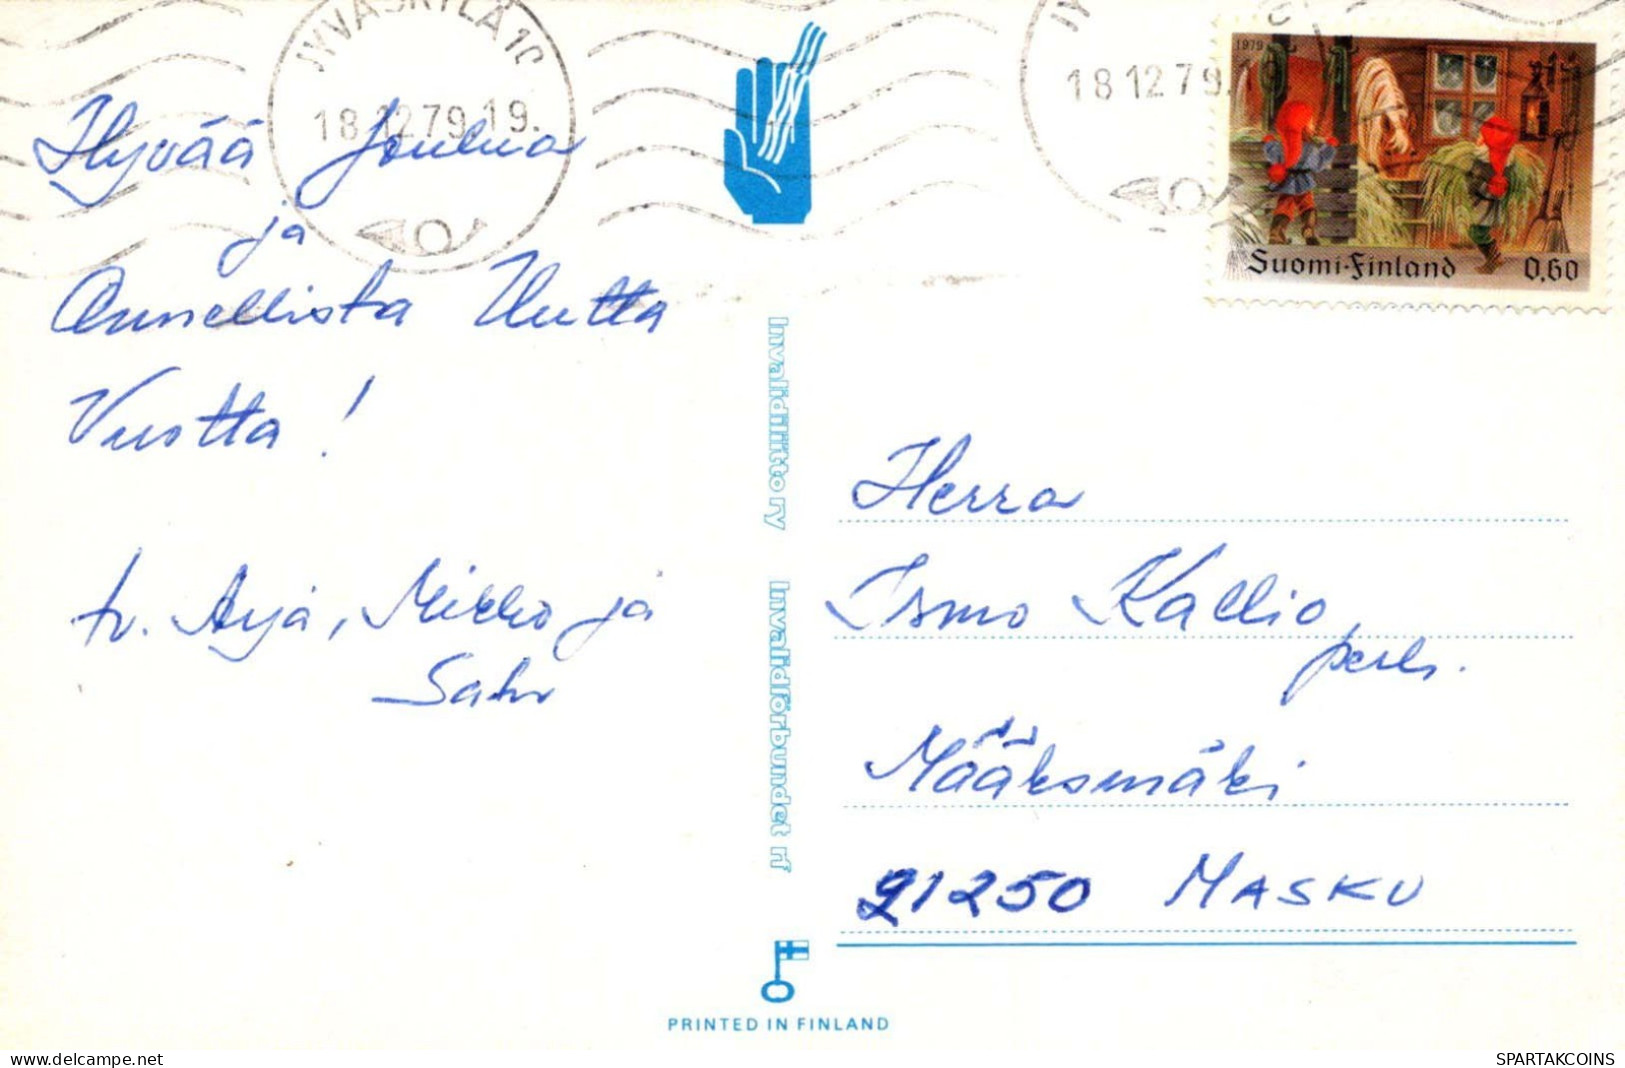 JYVÄSKYLÄ 10
18.12.79.19.
Hyvää Joulua
ja
Onnellista Uutta
Vuotta!
tv. Arja, Mikko ja
Satu
Invalidiliitto ry
Invalidförbundet rf
PRINTED IN FINLAND
JY
18 12 79.19
1979
Suomi-Finland 0,60
Herra
Ismo Kallio
perh.
Määksmäki
21250 MASKU
www.delcampe.net
SPARTAKCOINS